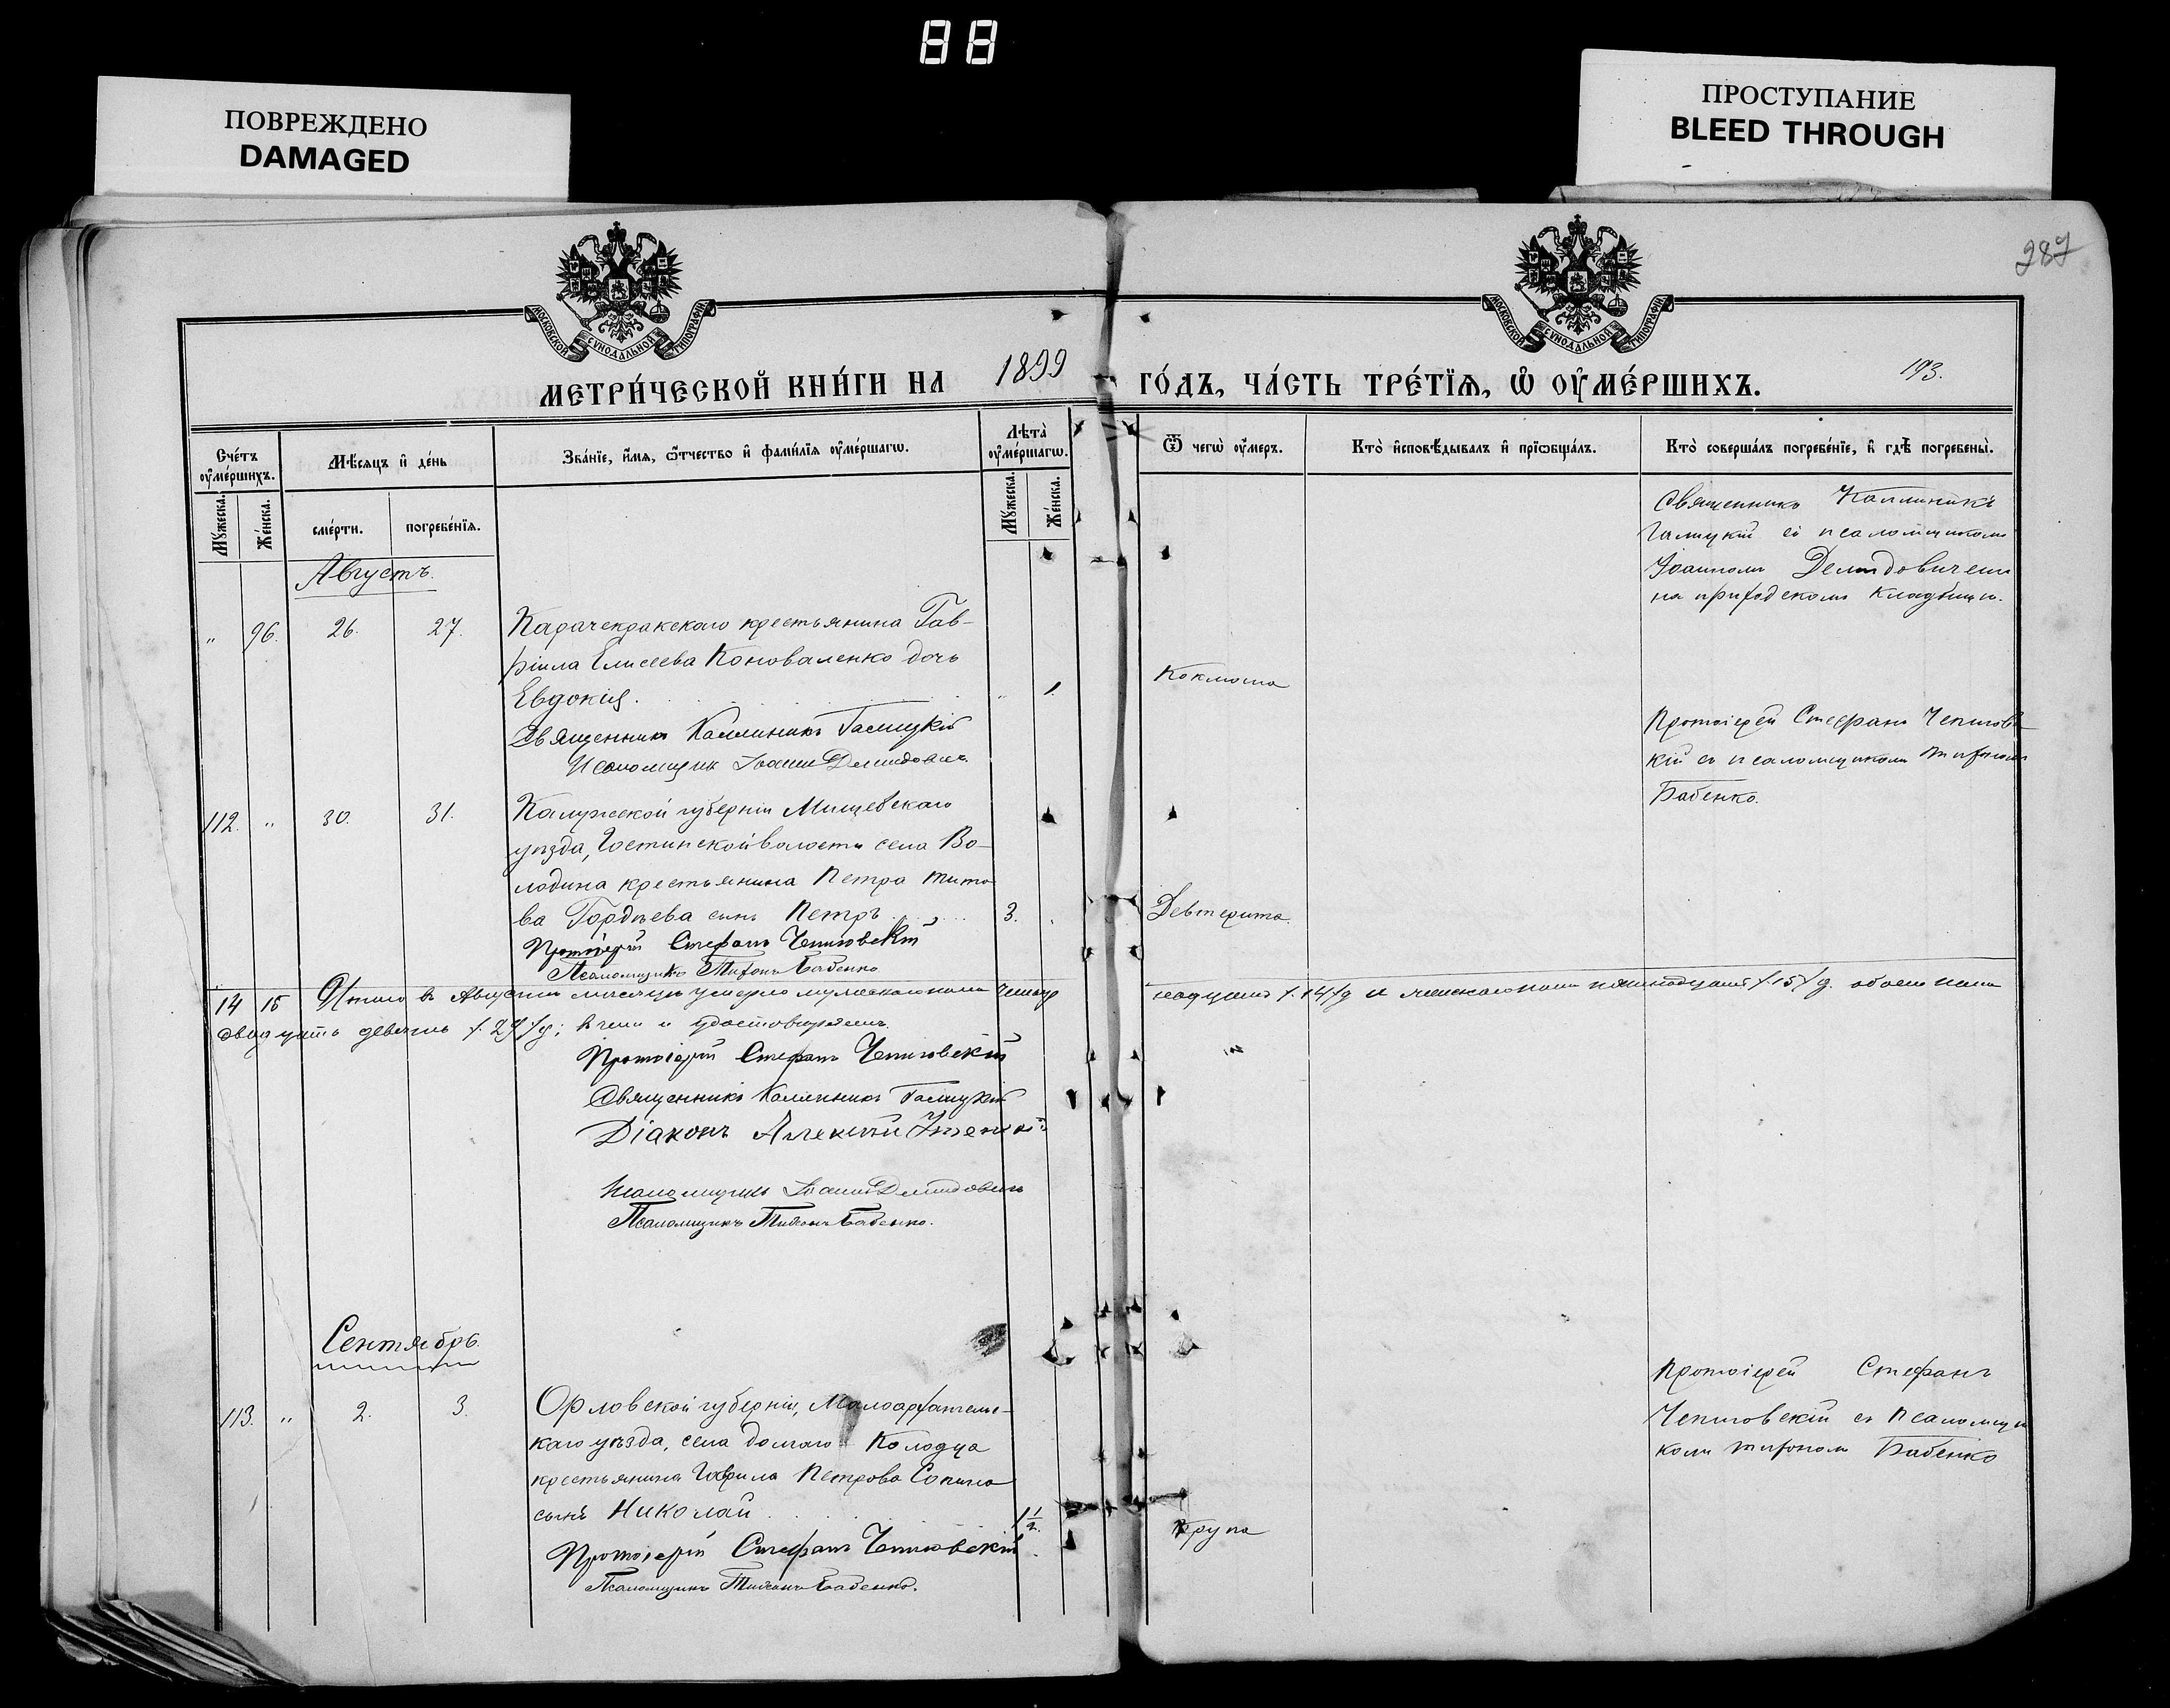 88
ПОВРЕЖДЕНО
DAMAGED
ПРОСТУПАНИЕ
BLEED THROUGH
287
МОСКОВСКОЙ СѴНОДАЛЬНОЙ ТИПОГРАФІИ
МОСКОВСКОЙ СѴНОДАЛЬНОЙ ТИПОГРАФІИ
МЕТРИ́ЧЕСКОЙ КНИ́ГИ НА 1899 ГО́ДЪ, ЧА́СТЬ ТРЕ́ТІѦ, Ѡ҆ ОУ҆МЕ́РШИХЪ.
193.
Сче́тъ оу҆ме́ршихъ.
Мѣ́сѧцъ и҆ де́нь
Зва́нїе, и҆́мѧ, ѻ҆́тчество и҆ фами́лїѧ оу҆ме́ршагѡ.
Лѣта̀ оу҆ме́ршагѡ.
Ѿ чегѡ̀ оу҆́меръ.
Кто̀ и҆сповѣ́дывалъ и҆ прїѡбща́лъ.
Кто̀ соверша́лъ погребе́нїе, и҆ гдѣ̀ погребены̀.
Мꙋ́жеска.
Же́нска.
сме́рти.
погребе́нїѧ.
Мꙋ́жеска.
Же́нска.
Священникъ Каллиникъ
Галицкій съ псаломщикомъ
Іоанномъ Демидовичемъ
на приходскомъ кладбищѣ.
Августъ.
" 96. 26. 27. Карачекракскаго крестьянина Гав-
ріила Елисеева Коноваленко дочь
Евдокія. " 1. Коклюша
Священникъ Каллиникъ Галицкій
Псаломщикъ Іоаннъ Демидовичъ
Протоіерей Стефанъ Чепиговс-
кій съ псаломщикомъ Тихономъ
Бабенко.
112. " 30. 31. Калужской губерніи Мищевскаго
уѣзда, Гостинской волости села Во-
лодина крестьянина Петра Тито-
ва Гордѣева сынъ Петръ 3. Девтерита.
Протоіерей Стефанъ Чепиговскій
Псаломщикъ Тихонъ Бабенко
14 15 Итого въ Августѣ мѣсяцѣ умерло мужескаго пола четыр надцать /.14/. и женскаго пола пятнадцать /.15/. обоего пола
двадцать девять /.29/.; въ чемъ и удостовѣряемъ.
Протоіерей Стефанъ Чепиговскій
Священникъ Каллиникъ Галицкій
Діаконъ Алексій
Псаломщикъ Іоаннъ Демидовичъ
Псаломщикъ Тихонъ Бабенко.
Сентябрь.
Протоіерей Стефанъ
Чепиговскій съ псаломщи-
комъ Тихономъ Бабенко
113. " 2. 3. Орловской губерніи, Малоархангельс-
каго уѣзда, села Долгаго Колодца
крестьянина Гаврила Петрова Сопина
сынъ Николай 1 1/2. Крупа
Протоіерей Стефанъ Чепиговскій
Псаломщикъ Тихонъ Бабенко.